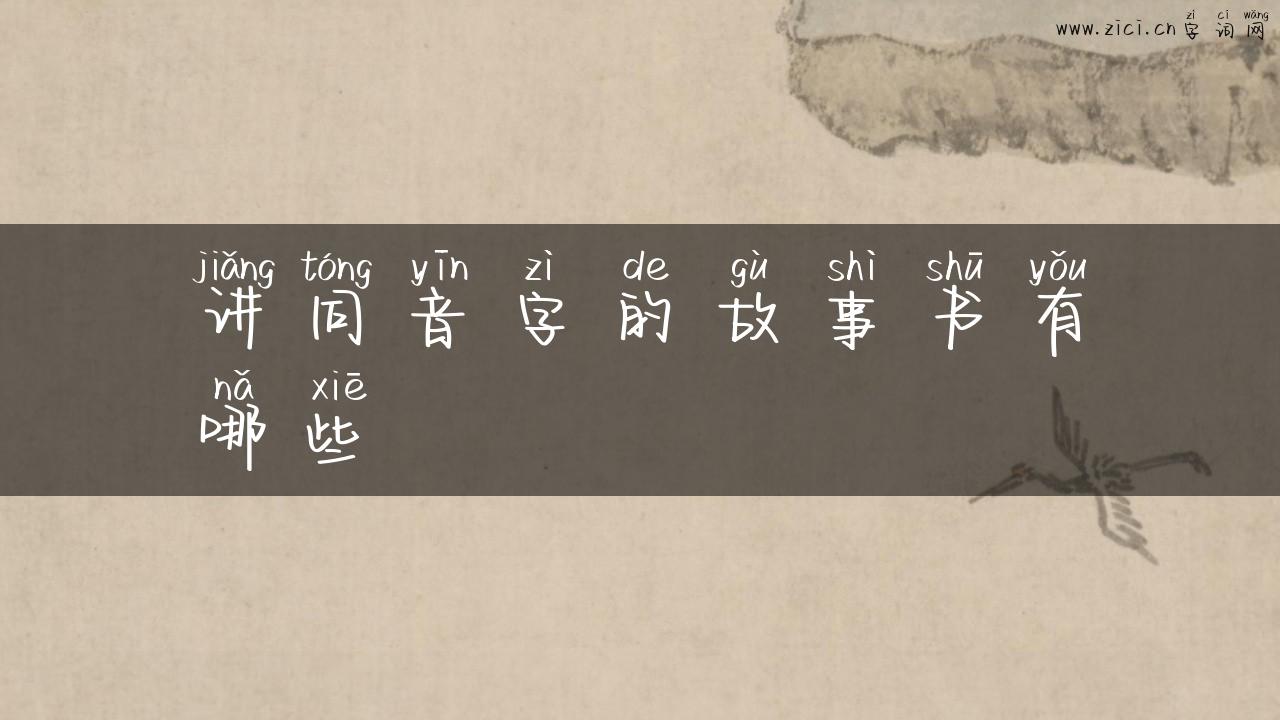 zì cí wǎng
www.zici.cn 字词网
jiǎng tóng yīn zì de gù shì shū yǒu
讲同音字的故事书有
nǎ xiē
哪些